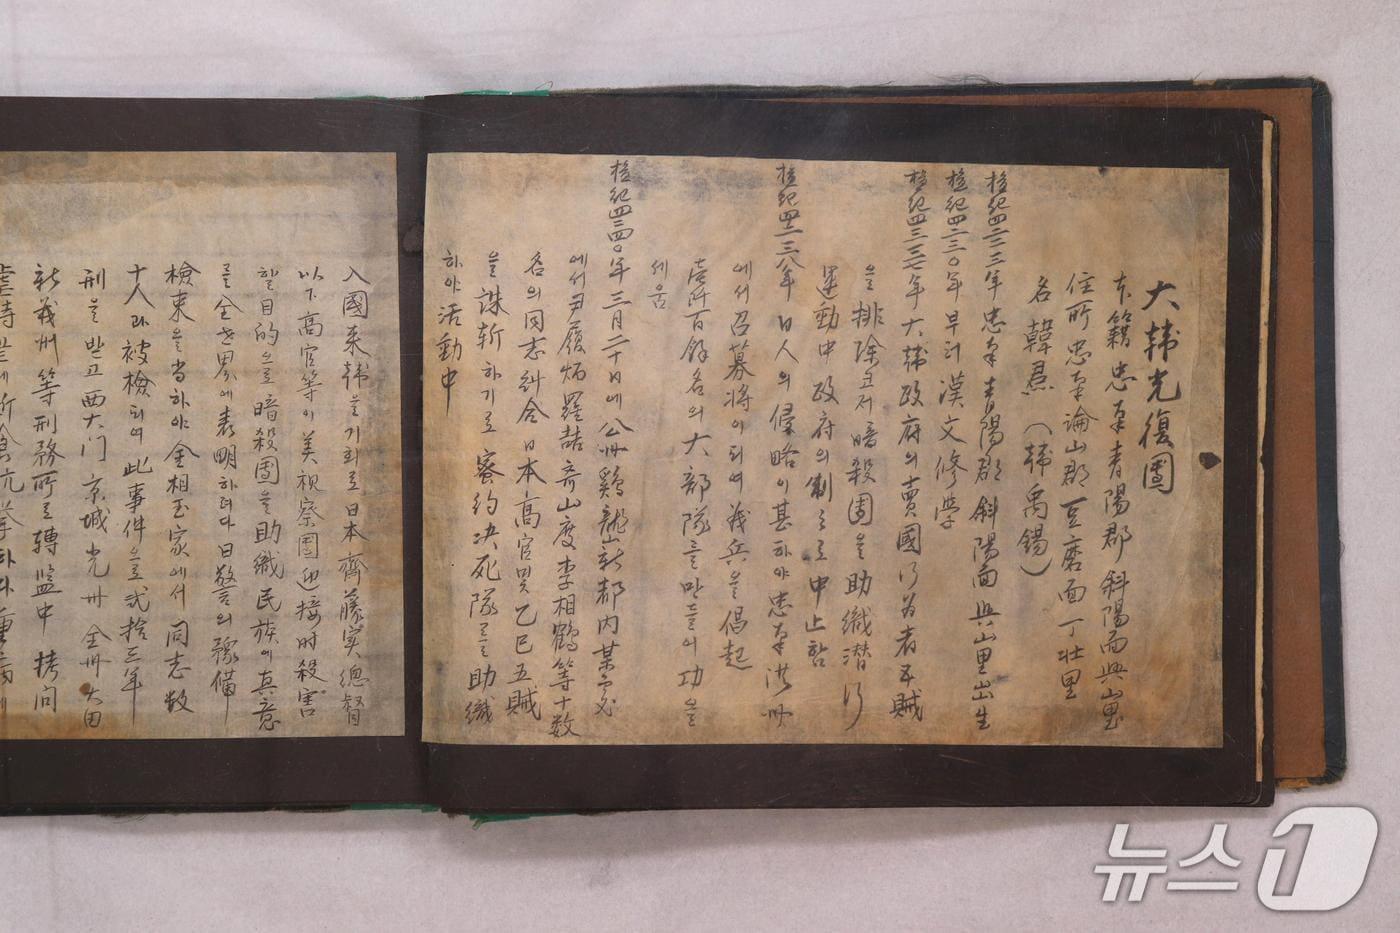 大韓光復團
本籍 忠南靑陽郡 斜陽面興山里
住所 忠南論山郡 豆磨面 丁壯里
名 韓焄 (韓禹錫)
檀紀四二二三年 忠南靑陽郡 斜陽面 興山里 出生
檀紀四二三〇年부터 漢文修學
檀紀四二三七年 大韓政府의 賣國行爲者 五賊
을 排除코저 暗殺團을 助織 潛行
運動中 政府의 制止로 中止함
檀紀四二三八年 日人의 侵略이 甚하야 忠南 洪州
에서 召募將이 되여 義兵을 倡起
壹阡百餘名의 大部隊를 만들어 功을
세움
檀紀四二四〇年 三月二十日에 公州 鷄龍山 新都內 某處
에서 尹履炳 羅喆 奇山度 李相鶴 等 十数
名의 同志 糾合 日本高官 및 乙巳五賊
을 誅斬하기로 密約 决死隊를 助織
하야 活動中
入國 来韓을 기회로 日本 齊藤実 總督
以下 高官等이 美視察團 迎接时 殺害
할 目的으로 暗殺團을 助織 民族에 眞意
를 全世界에 表明하려다 日警의 豫備
檢束을 当하야 金相玉家에서 同志 数
十人과 被檢되여 此事件으로 弐拾三年
刑을 받고 西大门 京城 光州 全州 大田
新義州 等 刑務所로 轉監中 拷问